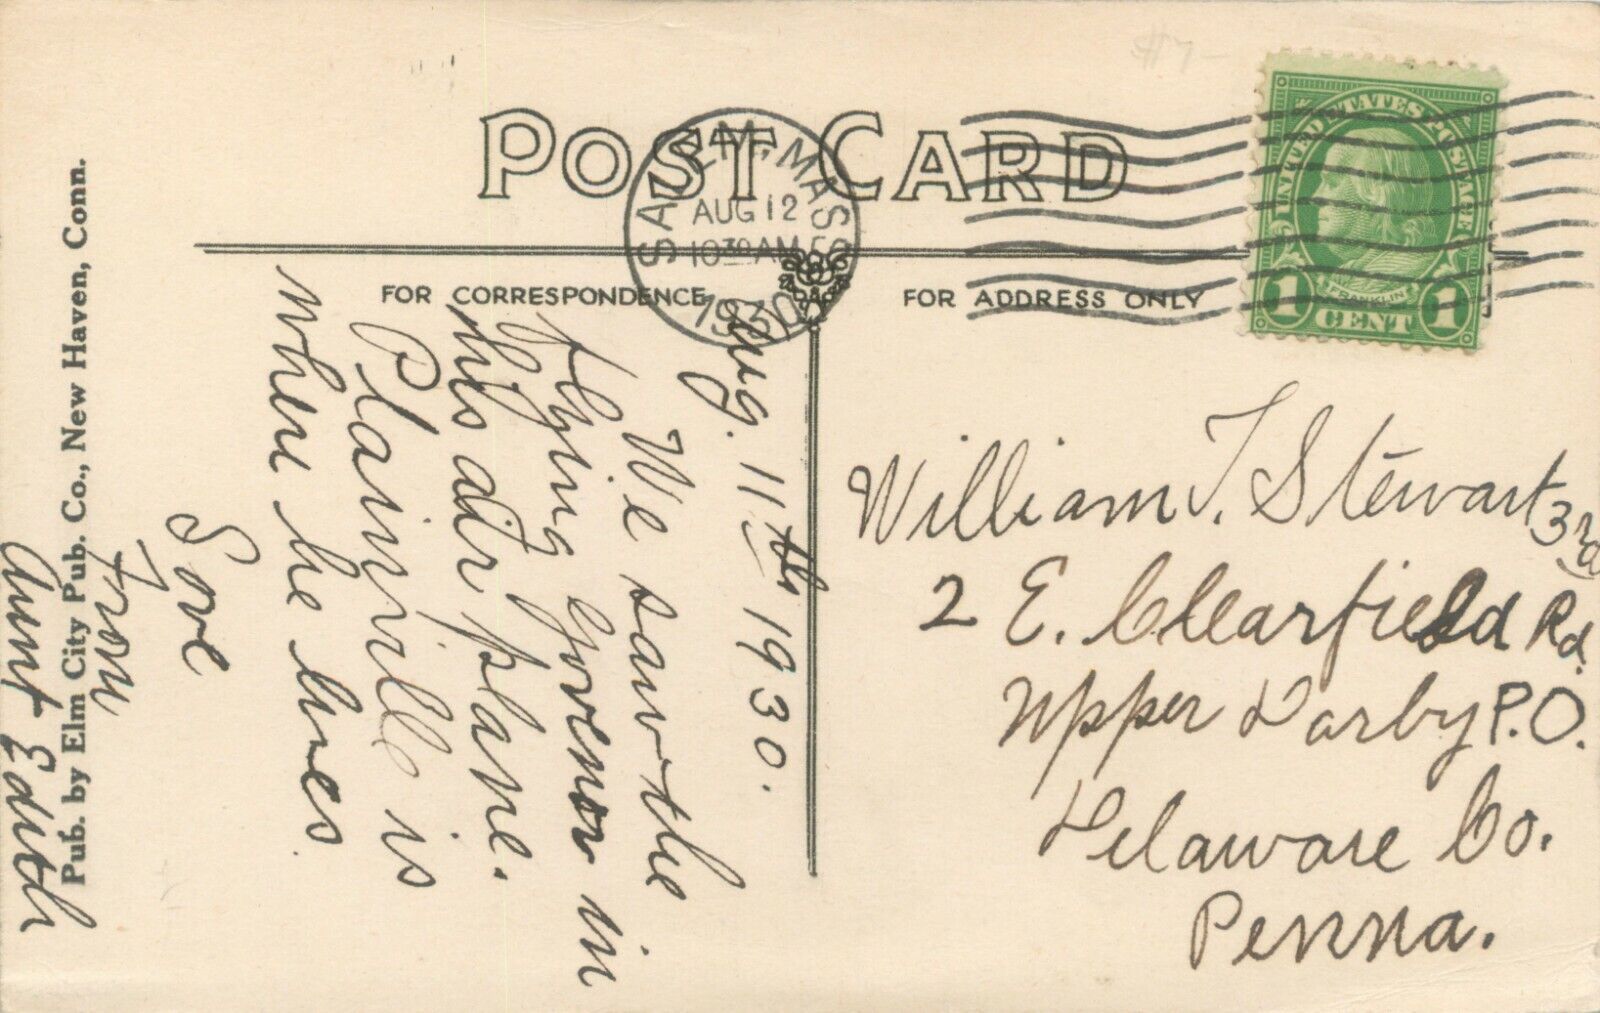 #7-
POST CARD
SALEM, MASS
AUG 12
10 30 AM
1930
UNITED STATES POSTAGE
FRANKLIN
1 CENT 1
FOR CORRESPONDENCE
FOR ADDRESS ONLY
Aug. 11th 1930.
We saw the
Flying Govenor in
his air plane.
Plainville is
where he lives.
Love
From
Aunt Edith
William T. Stewart 3rd
2 E. Clearfield Rd.
Upper Darby P.O.
Delaware Co.
Penna.
Pub. by Elm City Pub. Co., New Haven, Conn.